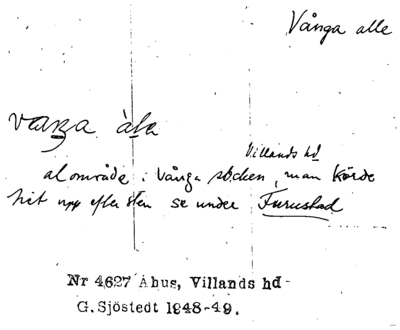 Vånga alle
vaŋa àla
Villands hd
alområde i Vånga socken, man körde
hit upp efter sten se under Furustad
Nr 4627 Åhus, Villands hd
G. Sjöstedt 1948-49.